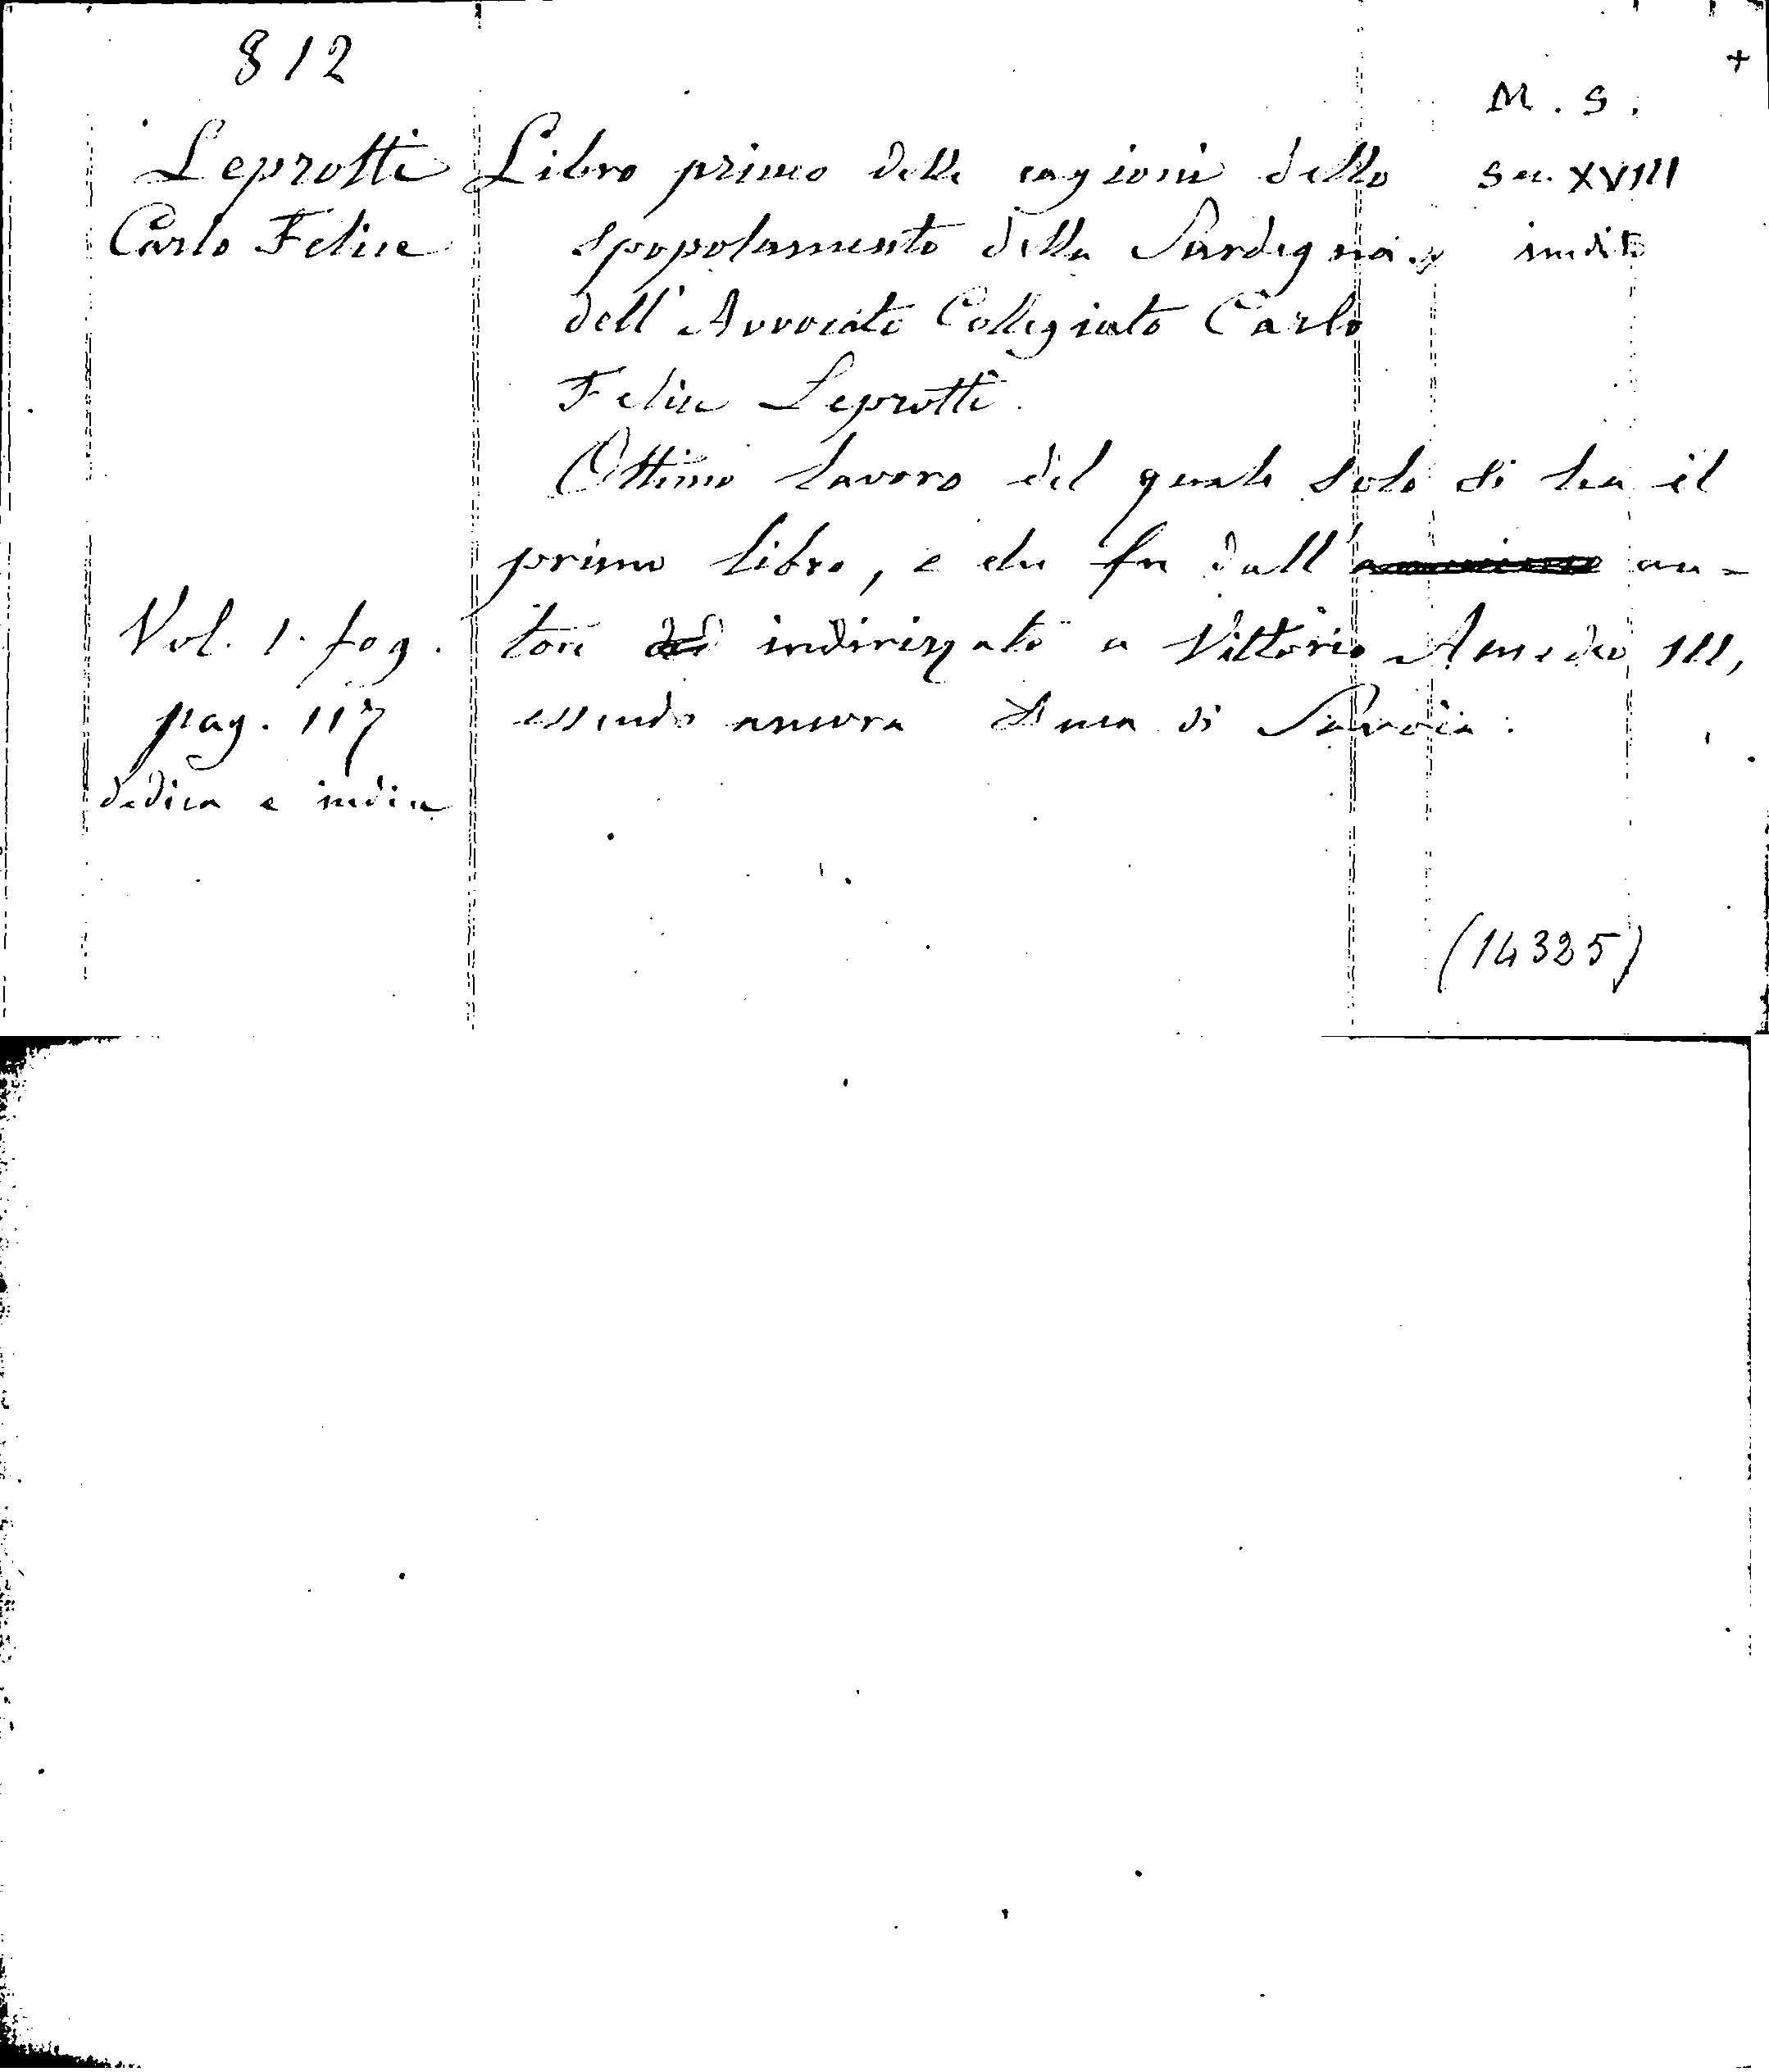 812
+
M. S.
Leprotti
Carlo Felice
Libro primo delle cagioni dello
spopolamento della Sardegna.
dell'Avvocato Collegiato Carlo
Felice Leprotti.
Sec. XVIII
inedito
Ottimo lavoro del quale solo si ha il
primo libro, e che fu dall' au-
tore indirizzato a Vittorio Amedeo III,
essendo ancora Duca di Savoia.
Vol. 1. fog.
pag. 117
dedica e indice
(14325)